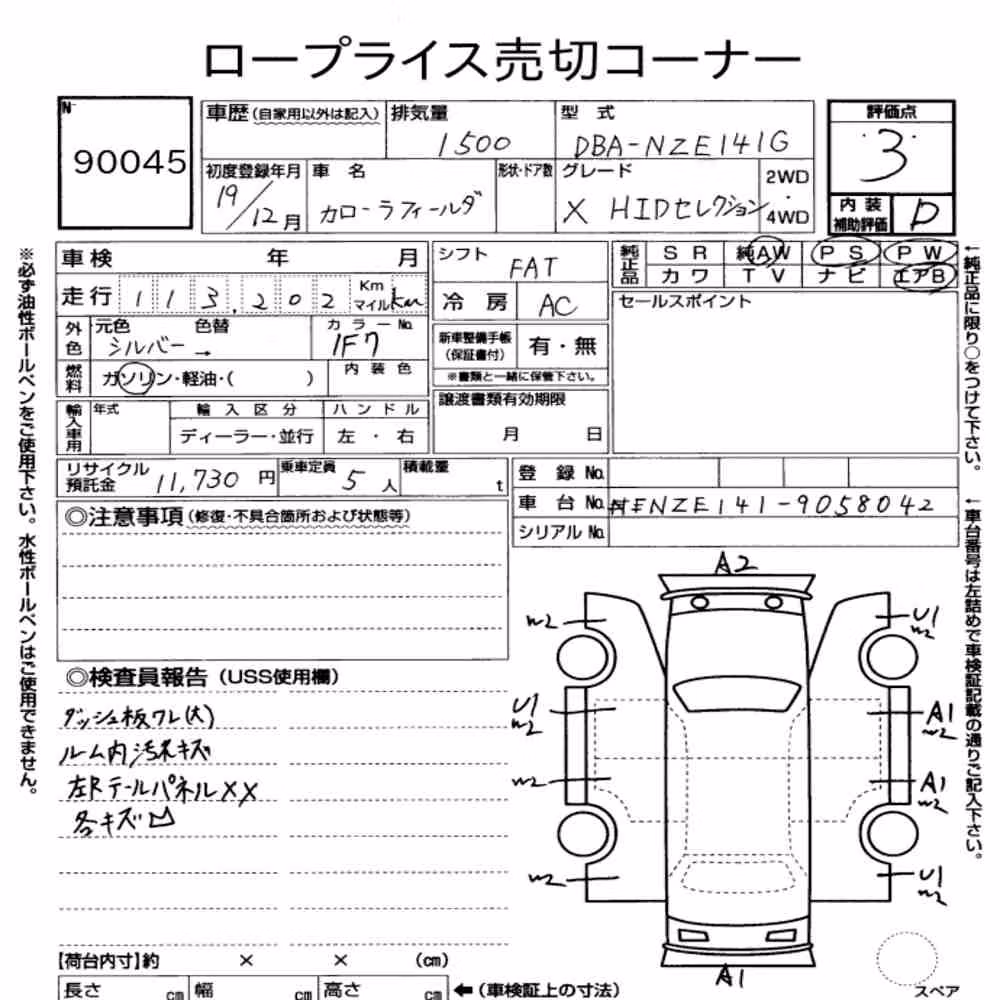 ロープライス売切コーナー
N-
90045
車歴(自家用以外は記入) 排気量 1500 型式 DBA-NZE141G
初度登録年月 19/12月 車名 カローラフィールダ 形状・ドア数 グレード X HIDセレクション 2WD・4WD
評価点 3
内装補助評価 D
車検 年 月
走行 113,202 Km マイル km
外色 元色 シルバー → 色替 カラーNo. 1F7
燃料 ガソリン・軽油・( ) 内装色
輸入車用 年式 輸入区分 ハンドル
ディーラー・並行 左・右
リサイクル預託金 11,730 円 乗車定員 5 人 積載量 t
シフト FAT
冷房 AC
新車整備手帳(保証書付) 有・無
※書類と一緒に保管下さい。
譲渡書類有効期限
月 日
純正品 SR 純AW PS PW
カワ TV ナビ エアB
セールスポイント
登録No.
車台No. NZE141-9058042
シリアルNo.
◎注意事項(修復・不具合箇所および状態等)
◎検査員報告(USS使用欄)
ダッシュ板ワレ(大)
ルーム内汚れキズ
左Rテールパネル××
各キズ凹
A2
W2
U1
W2
U1
W2
A1
W2
W2
A1
W2
W2
U1
W2
A1
スペア
【荷台内寸】約 × × (cm)
長さ cm 幅 cm 高さ cm ←(車検証上の寸法)
※必ず油性ボールペンをご使用下さい。水性ボールペンはご使用できません。
←純正品に限り○をつけて下さい。
←車台番号は左詰めで車検証記載の通りご記入下さい。